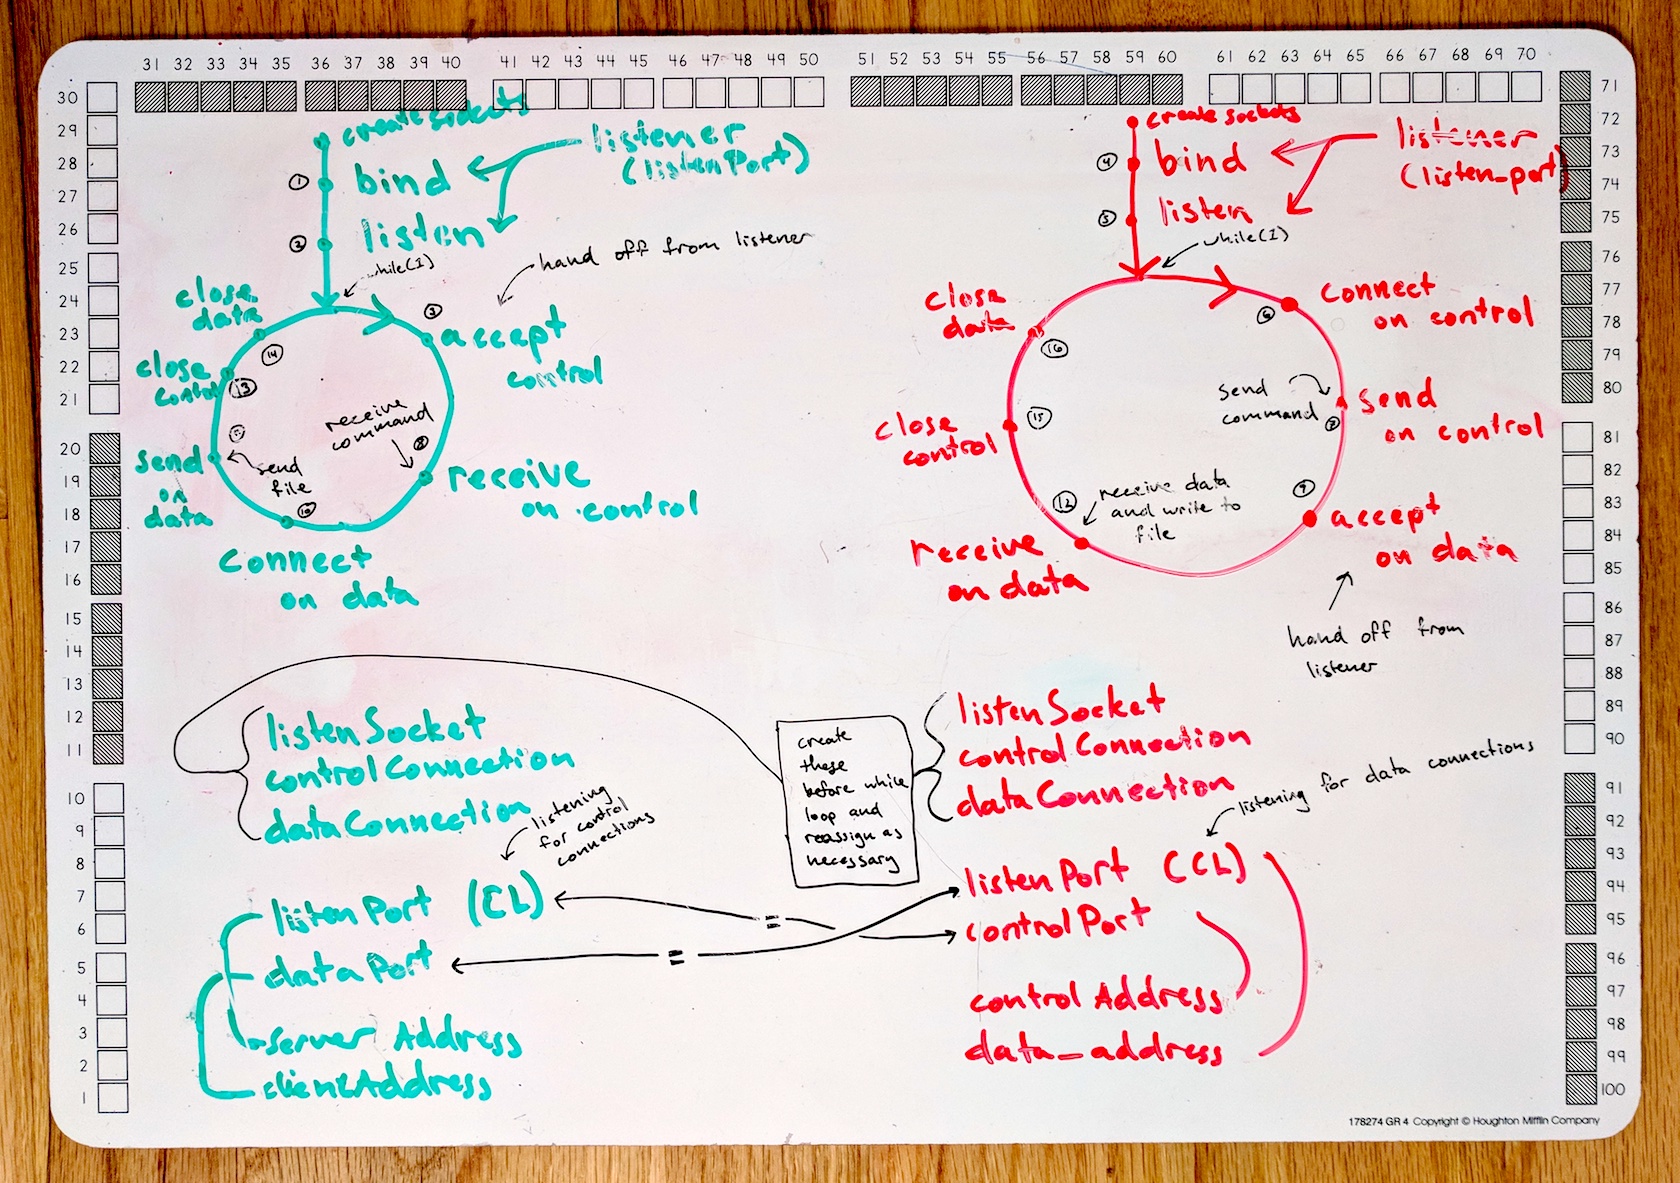 31 32 33 34 35 36 37 38 39 40 41 42 43 44 45 46 47 48 49 50 51 52 53 54 55 56 57 58 59 60 61 62 63 64 65 66 67 68 69 70
30
29
28
27
26
25
24
23
22
21
20
19
18
17
16
15
14
13
12
11
10
9
8
7
6
5
4
3
2
1
create sockets
listener
(listenPort)
1
bind
2
listen
while(1)
hand off from listener
3
accept
control
receive
command
8
receive
on control
10
connect
on data
send
file
send
on
data
13
close
control
14
close
data
listenSocket
control Connection
data Connection
listening
for control
connections
listen Port (CL)
data Port
server Address
clientAddress
=
=
create
these
before while
loop and
reassign as
necessary
create sockets
listener
(listen_port)
4
bind
5
listen
while(1)
6
connect
on control
send
command
send
on control
9
accept
on data
hand off from
listener
12
receive data
and write to
file
receive
on data
15
close
control
16
close
data
listenSocket
control Connection
data Connection
listening for data connections
listen Port (CCL)
control Port
control Address
data_address
71
72
73
74
75
76
77
78
79
80
81
82
83
84
85
86
87
88
89
90
91
92
93
94
95
96
97
98
99
100
178274 GR 4 Copyright © Houghton Mifflin Company